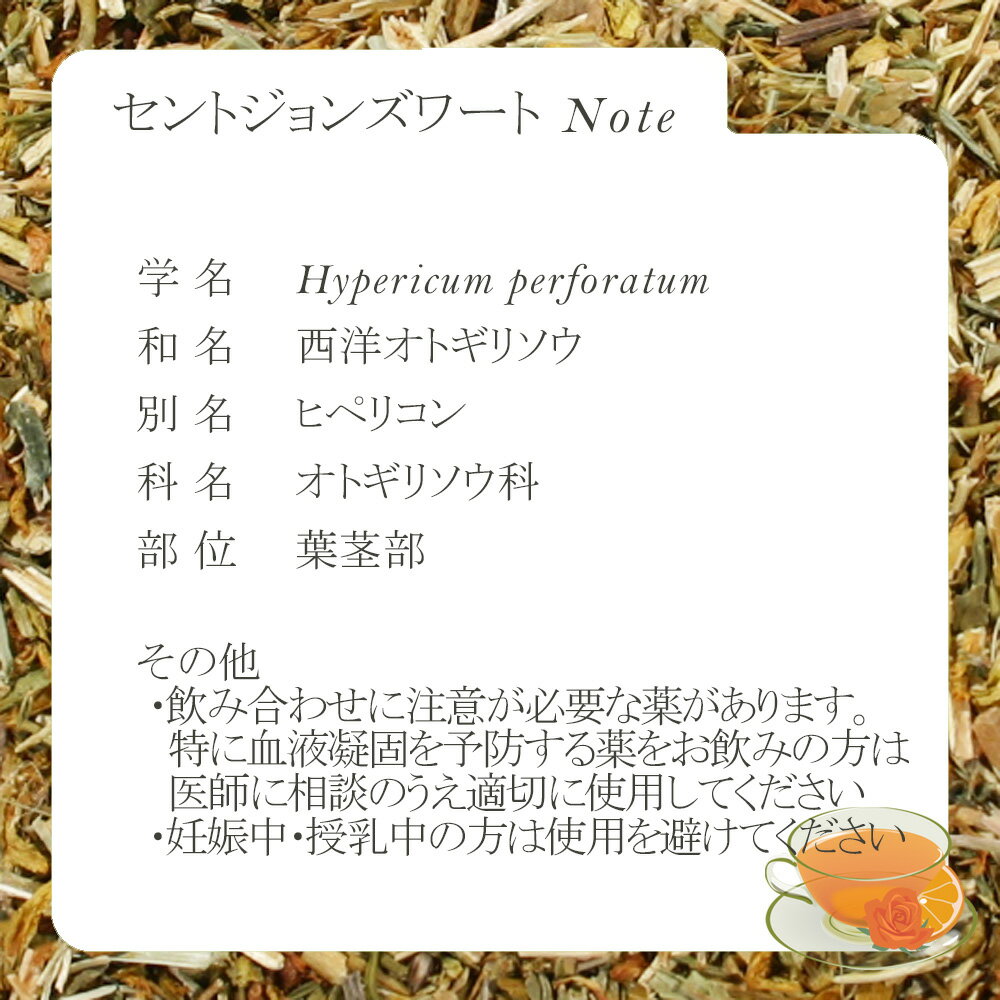 セントジョンズワート Note
学名 Hypericum perforatum
和名 西洋オトギリソウ
別名 ヒペリコン
科名 オトギリソウ科
部位 葉茎部
その他
・飲み合わせに注意が必要な薬があります。
特に血液凝固を予防する薬をお飲みの方は
医師に相談のうえ適切に使用してください
・妊娠中・授乳中の方は使用を避けてください